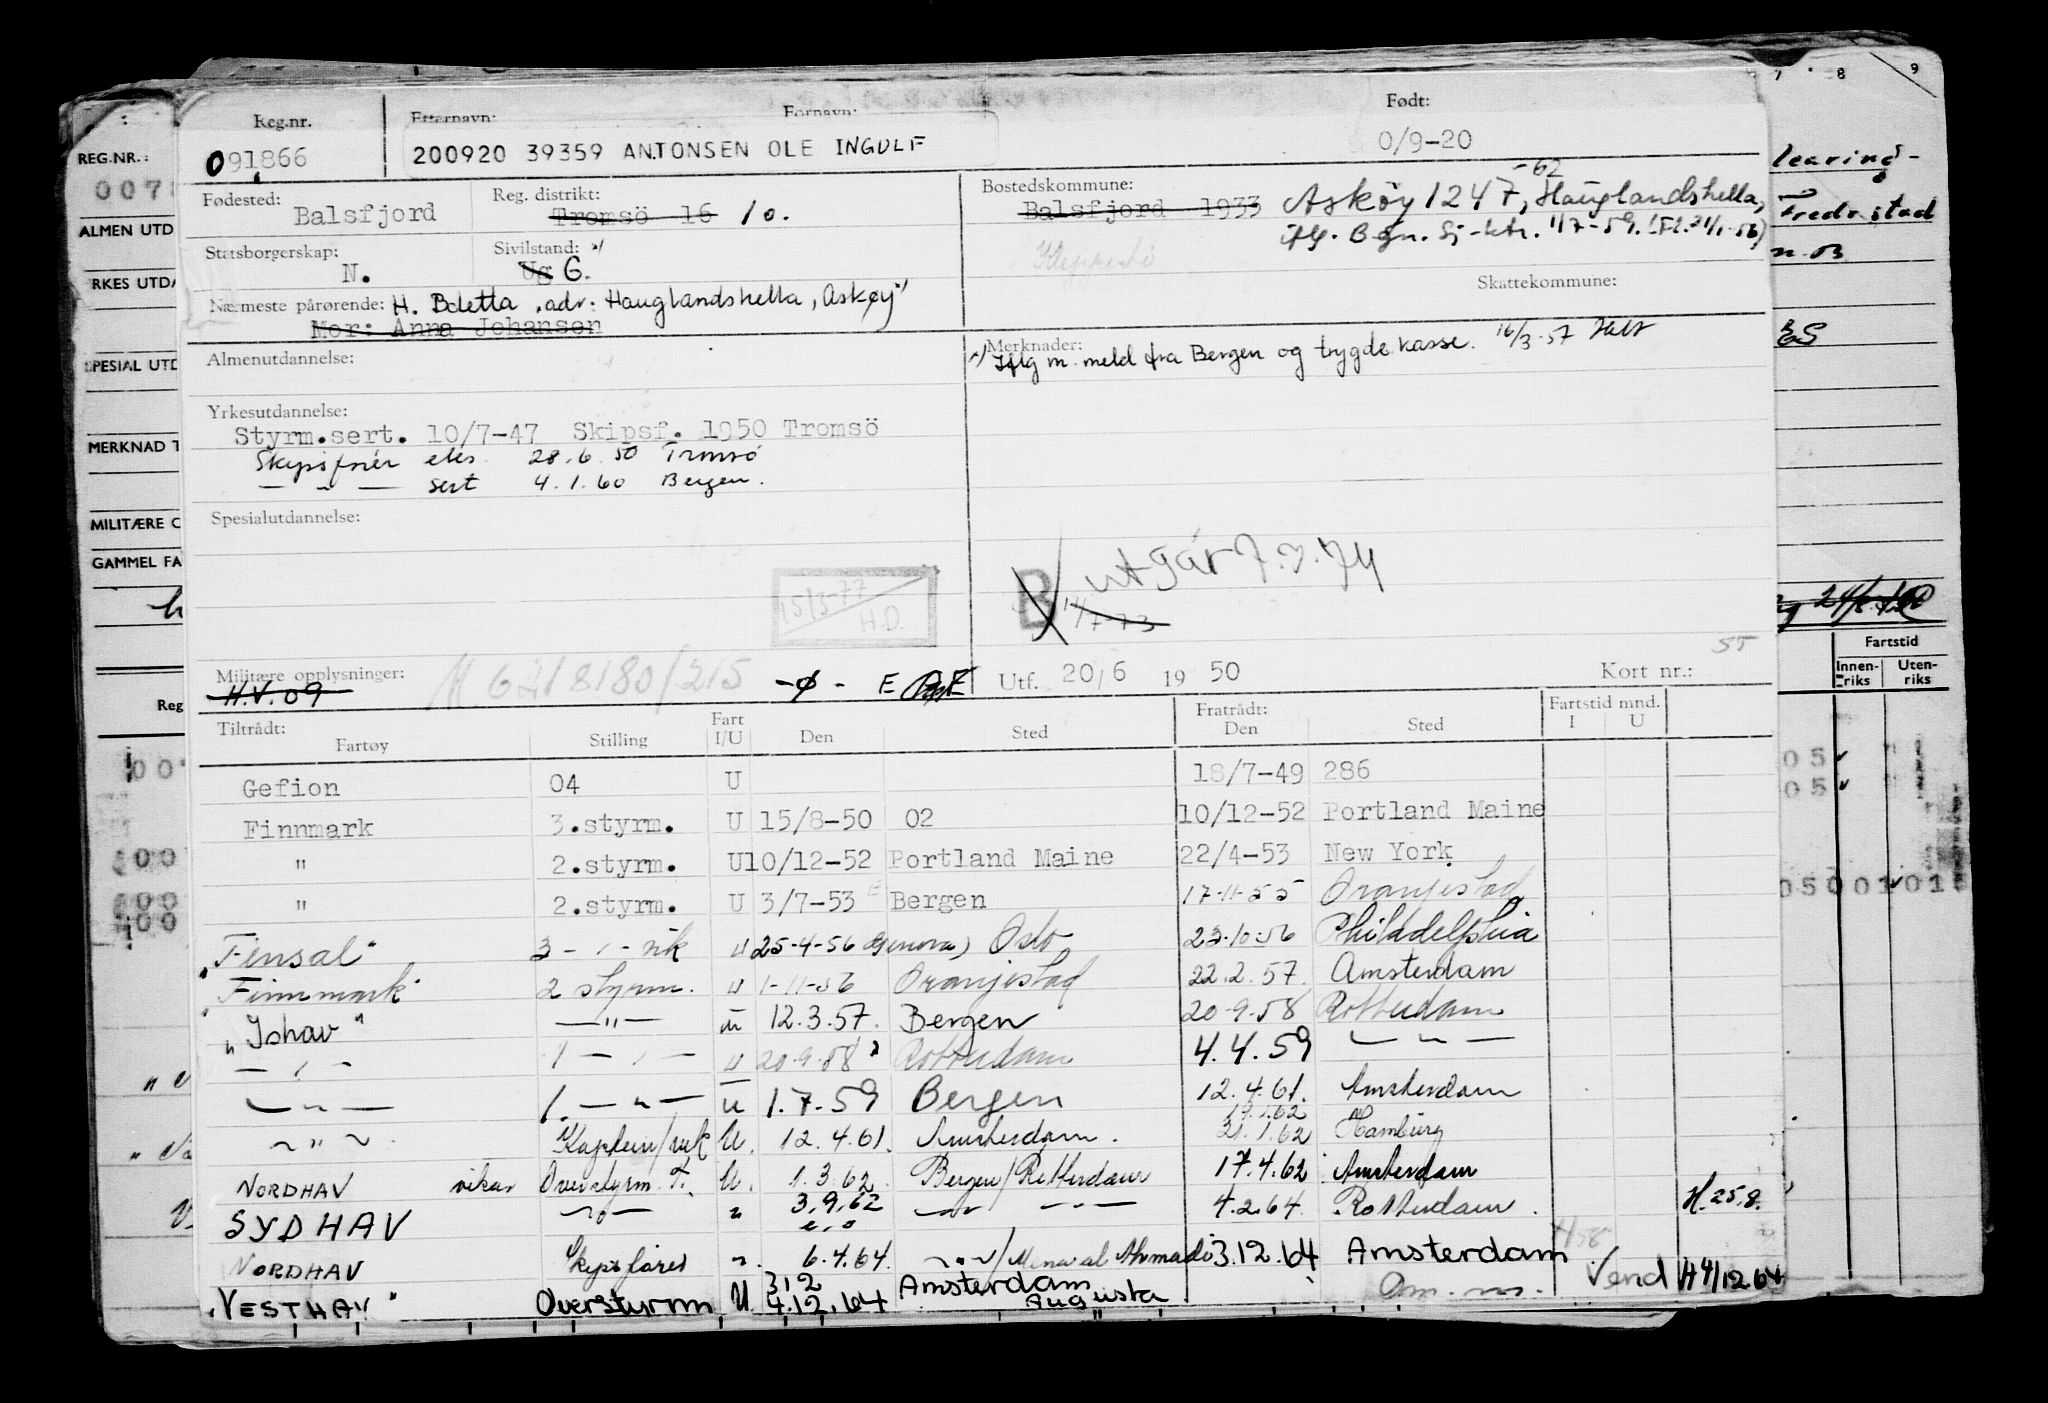 Reg.nr. Etternavn: Fornavn: Født:
091866 200920 39359 ANTONSEN OLE INGULF 0/9-20
Fødested: Balsfjord Reg. distrikt: Tromsö 16 10.
Bostedskommune: Balsfjord 1933 Askøy 1247, Hauglandshella, -62
iflg. Bgn. Sj-ktr. 1/7-59.
Statsborgerskap: N. Sivilstand: x/ Ug G.
Kleppestö
Skattekommune:
Næermeste pårørende: H. Boletta, adr: Hauglandshella, Askøy
Mor: Anna Johansen
Almenutdannelse:
Merknader:
x) Iflg m. meld fra Bergen og trygdekasse. 16/3-57
Yrkesutdannelse:
Styrm.sert. 10/7-47 Skipsf. 1950 Tromsö
Skipsfører eks. 28.6.50 Tromsö
— " — sert 4.1.60 Bergen.
Spesialutdannelse:
utgår 7.7.74
B 14/7-73
15/3-77
H.D.
ST
Militære opplysninger: -ø- E
H.V.09
Utf. 20/6 19 50 Kort nr.:
Tiltrådt: Fratrådt: Fartstid mnd.
Fartøy Stilling Fart I/U Den Sted Den Sted I U
Gefion 04 U 18/7-49 286
Finnmark 3.styrm. U 15/8-50 02 10/12-52 Portland Maine
" 2.styrm. U 10/12-52 Portland Maine 22/4-53 New York
" 2.styrm. U 3/7-53 Bergen 17-11-55 Oranjestad
"Fensal" 3 - " - vik u 25-4-56 (Genova) Oslo 23-10-56 Philadelphia
"Finnmark" 2 styrm. u 1-11-56 Oranjestad 22.2.57. Amsterdam
"Ishav" — " — u 12.3.57. Bergen 20-9-58 Rotterdam
— " — 1 — " — u 20-9-58 Rotterdam 4.4.59 — " —
— " — 1. — " — u 1.7.59 Bergen 12.4.61. Amsterdam
— " — Kaptein/vik U. 12.4.61. Amsterdam. 21.1.62 Hamburg
NORDHAV vikar Overstyrm. U. 1.3.62. Bergen/Rotterdam 17.4.62 Amsterdam
SYDHAV — " — " 3.9.62 — " — — " — 4.2.64. Rotterdam. H.25.8.
NORDHAV Skipsfører " 6.4.64. — " —/Mena al Ahmadi 3.12.64 Amsterdam
"VESTHAV" Overstyrm U 3.12 4.12.64 Amsterdam Augusta Om.m. Vend H 4/12 64
REG.NR.:
007
ALMEN UTD
RKES UTDA
SPESIAL UTD
MERKNAD T
MILITÆRE O
GAMMEL FA
Reg
7 8 9
Fredrstad
Fartstid
Innen-riks Uten-riks
05
05
05001010